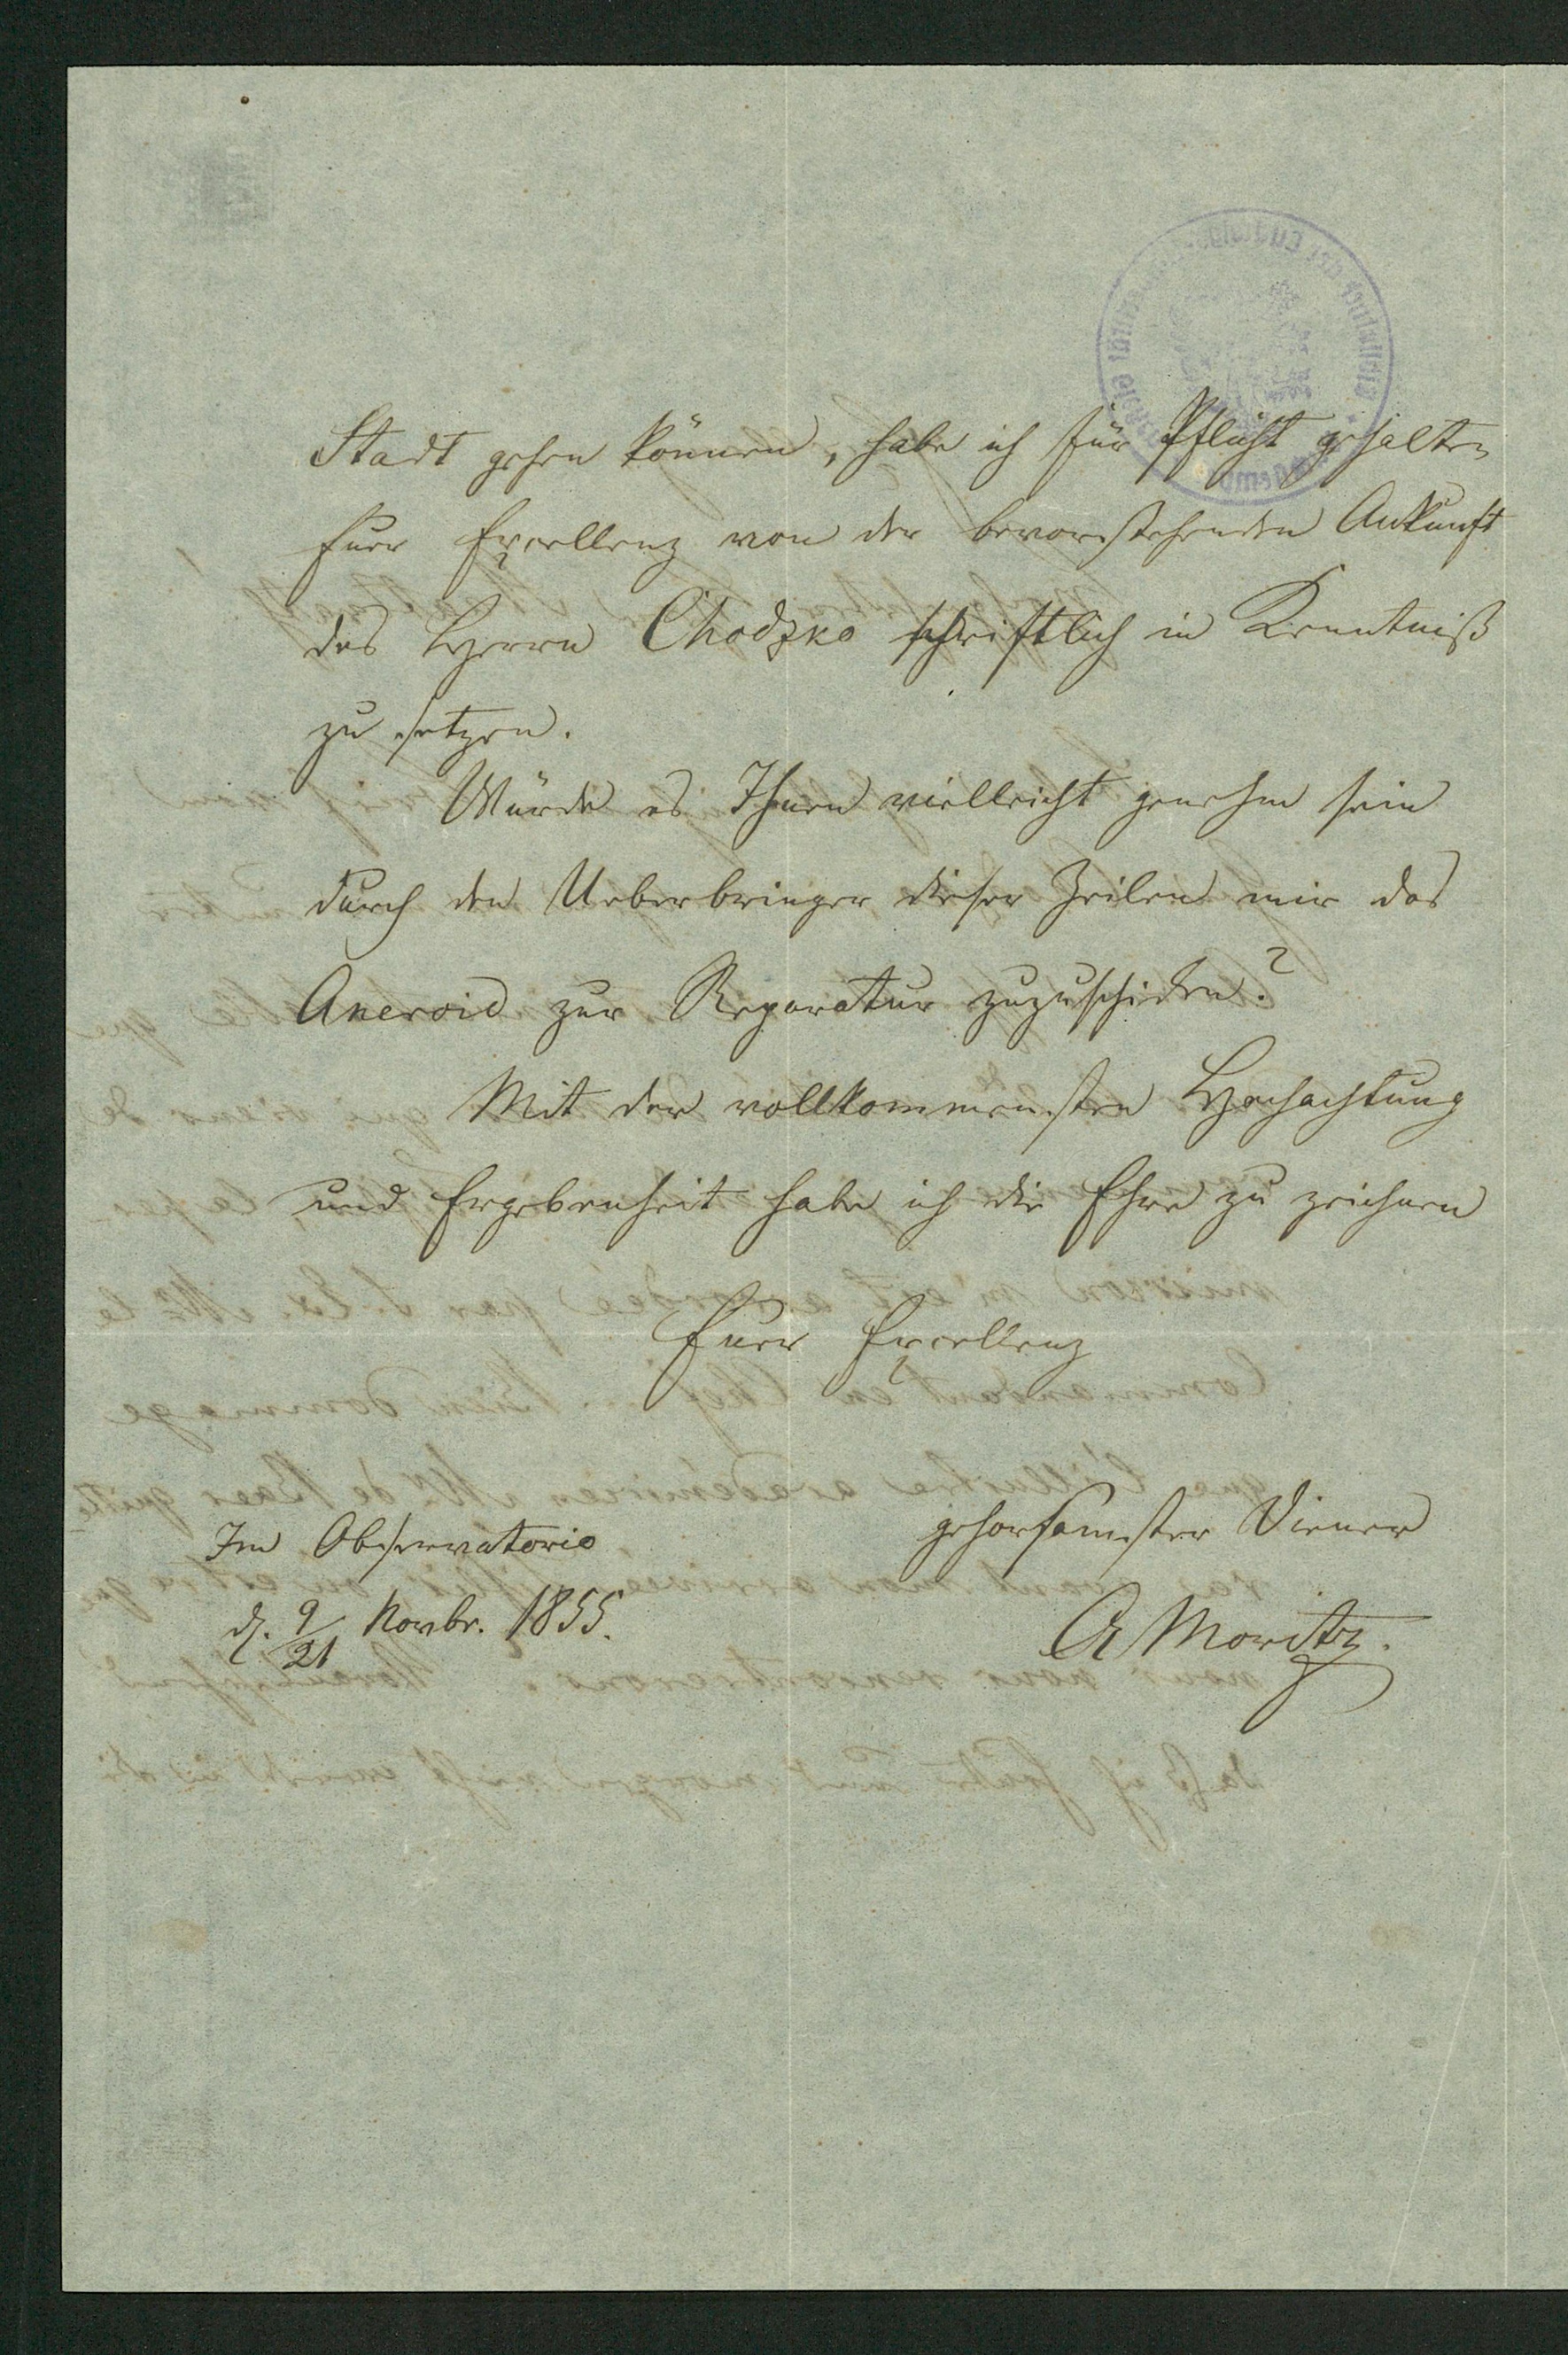 Stadt gehen können, habe ich für Pflicht gehalten
Euer Excellenz von der bevorstehenden Ankunft
des Herrn Chodzko schriftlich in Kenntniß
zu setzen.
Würde es Ihnen vielleicht genehm sein
durch den Ueberbringer dieser Zeilen mir das
Aneroid zur Reparatur zuzuschicken?
Mit der vollkommensten Hochachtung
und Ergebenheit habe ich die Ehre zu zeichnen
Euer Excellenz
gehorsamster Diener
Im Observatorio
d. 9/21 Novbr. 1855.
A Moritz.